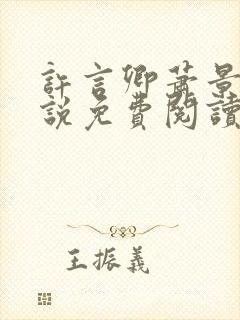 許言卿蕭景
說免費閱讀
王振義